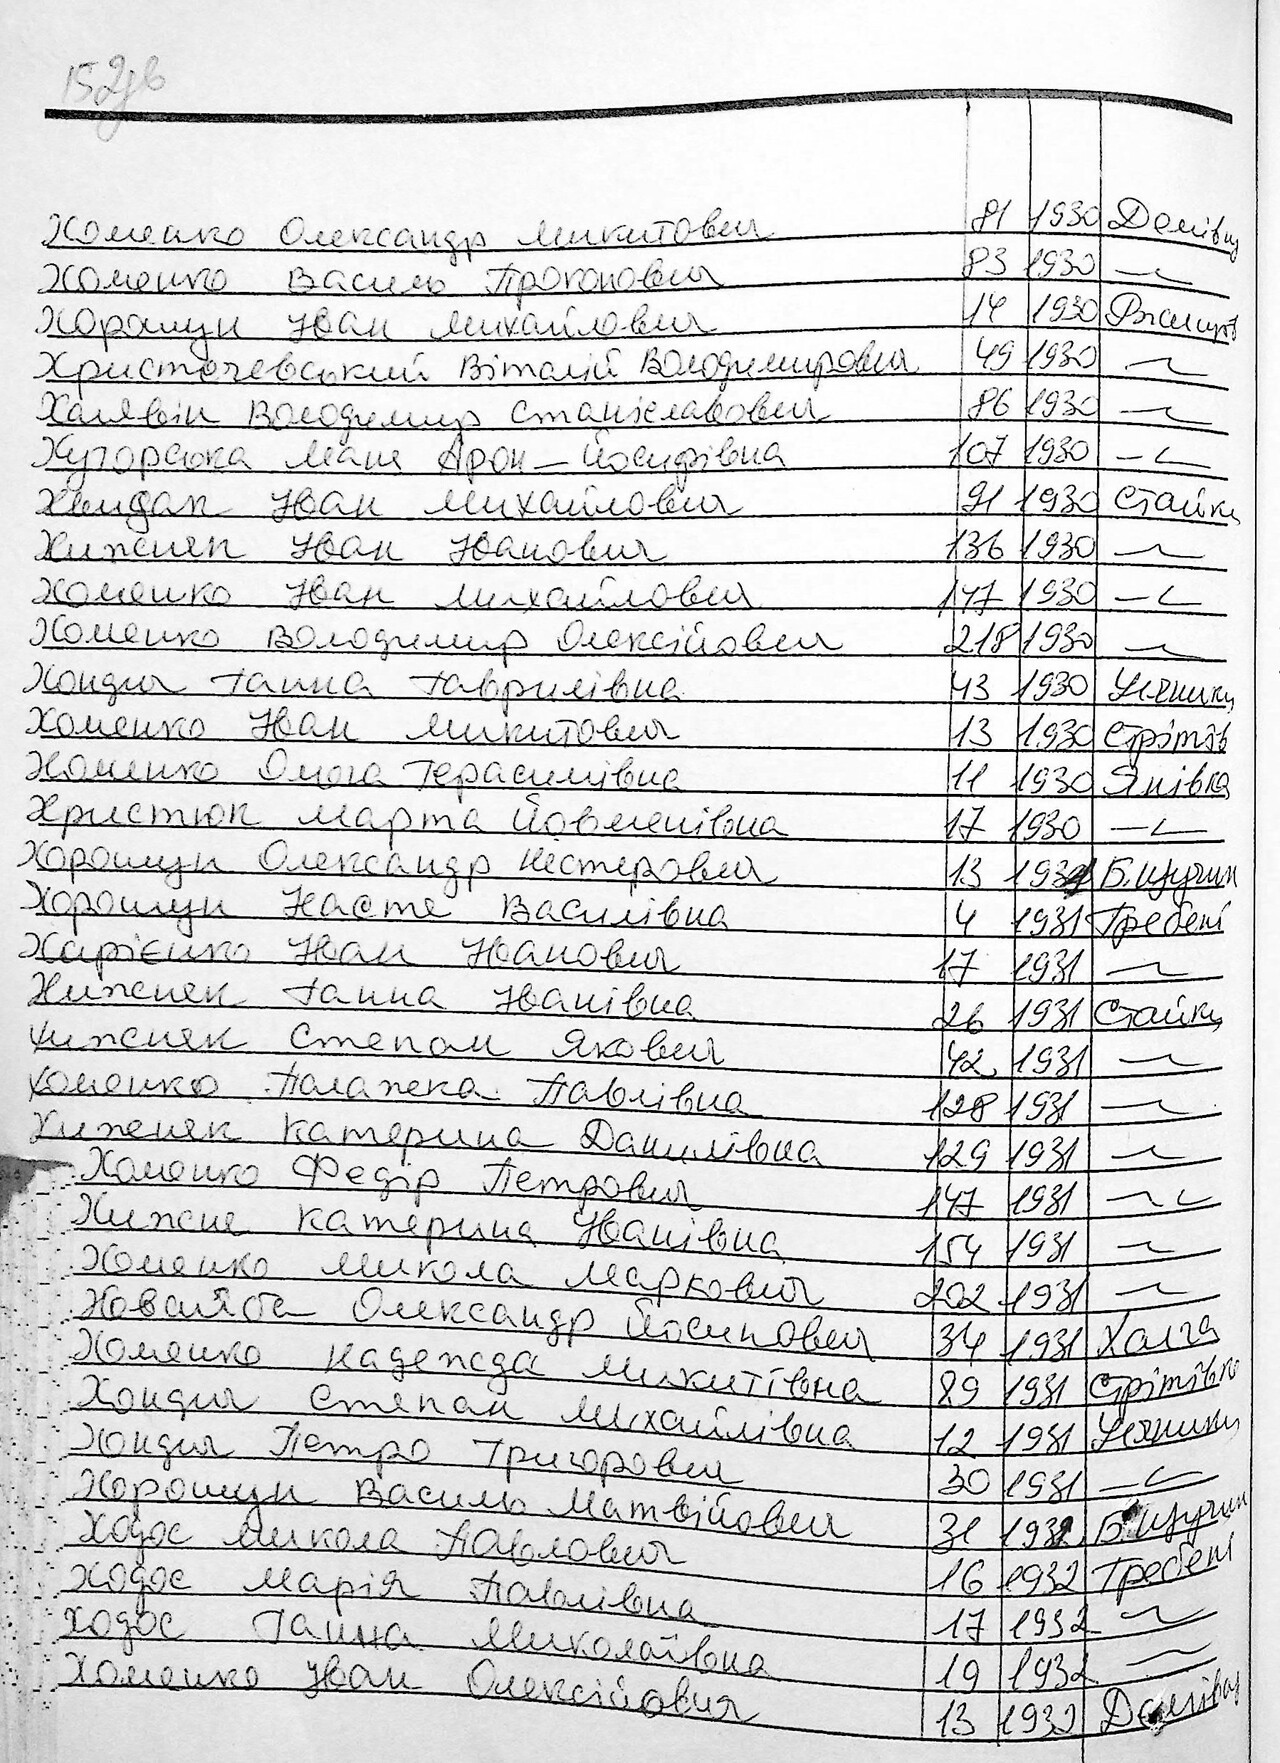 152зв
Хоменко Олександр Микитович 81 1930 Данівка
Хоменко Василь Прокопович 83 1930 —〃—
Хорошун Іван Михайлович 14 1930 Ржищів
Христочевський Віталій Володимирович 49 1930 —〃—
Халявін Володимир Станіславович 86 1930 —〃—
Хуторська Маня Арон-Йосифівна 107 1930 —〃—
Хвидак Іван Михайлович 91 1930 Стайки
Хижняк Іван Іванович 136 1930 —〃—
Хоменко Іван Михайлович 147 1930 —〃—
Хоменко Володимир Олексійович 218 1930 —〃—
Хондич Ганна Гаврилівна 43 1930 Уляники
Хоменко Іван Микитович 13 1930 Стрітів
Хоменко Ольга Герасимівна 11 1930 Янівка
Христюк Марта Йовменівна 17 1930 —〃—
Хорошун Олександр Нестерович 13 1931 Б. Щучин
Хорошун Настя Василівна 4 1931 Гребені
Харієнко Іван Іванович 17 1931 —〃—
Хижняк Ганна Іванівна 26 1931 Стайки
Хижняк Степан Якович 42 1931 —〃—
Хоменко Палажка Павлівна 128 1931 —〃—
Хижняк Катерина Данилівна 129 1931 —〃—
Хоменко Федір Петрович 147 1931 —〃—
Хижня Катерина Іванівна 154 1931 —〃—
Хоменко Микола Маркович 202 1931 —〃—
Олександр Йосипович 34 1931 Халча
Хоменко Надежда Микитівна 89 1931 Стрітівка
Хондич Степан Михайлівна 12 1931 Уляники
Хондич Петро Григорович 30 1931 —〃—
Хорошун Василь Матвійович 31 1932 Б. Щучин
Ходос Микола Павлович 16 1932 Гребені
Ходос Марія Павлівна 17 1932 —〃—
Ходос Ганна Миколаївна 19 1932 —〃—
Хоменко Іван Олексійович 13 1932